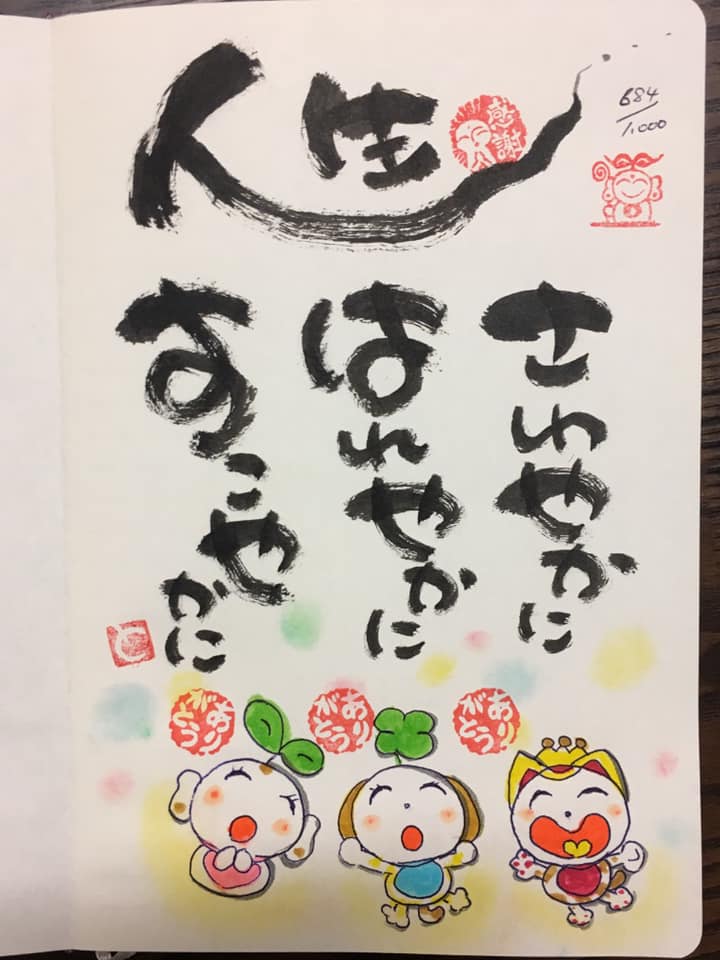 人生
感謝
684/1,000
さわやかに
はれやかに
すこやかに
ありがとう
ありがとう
ありがとう